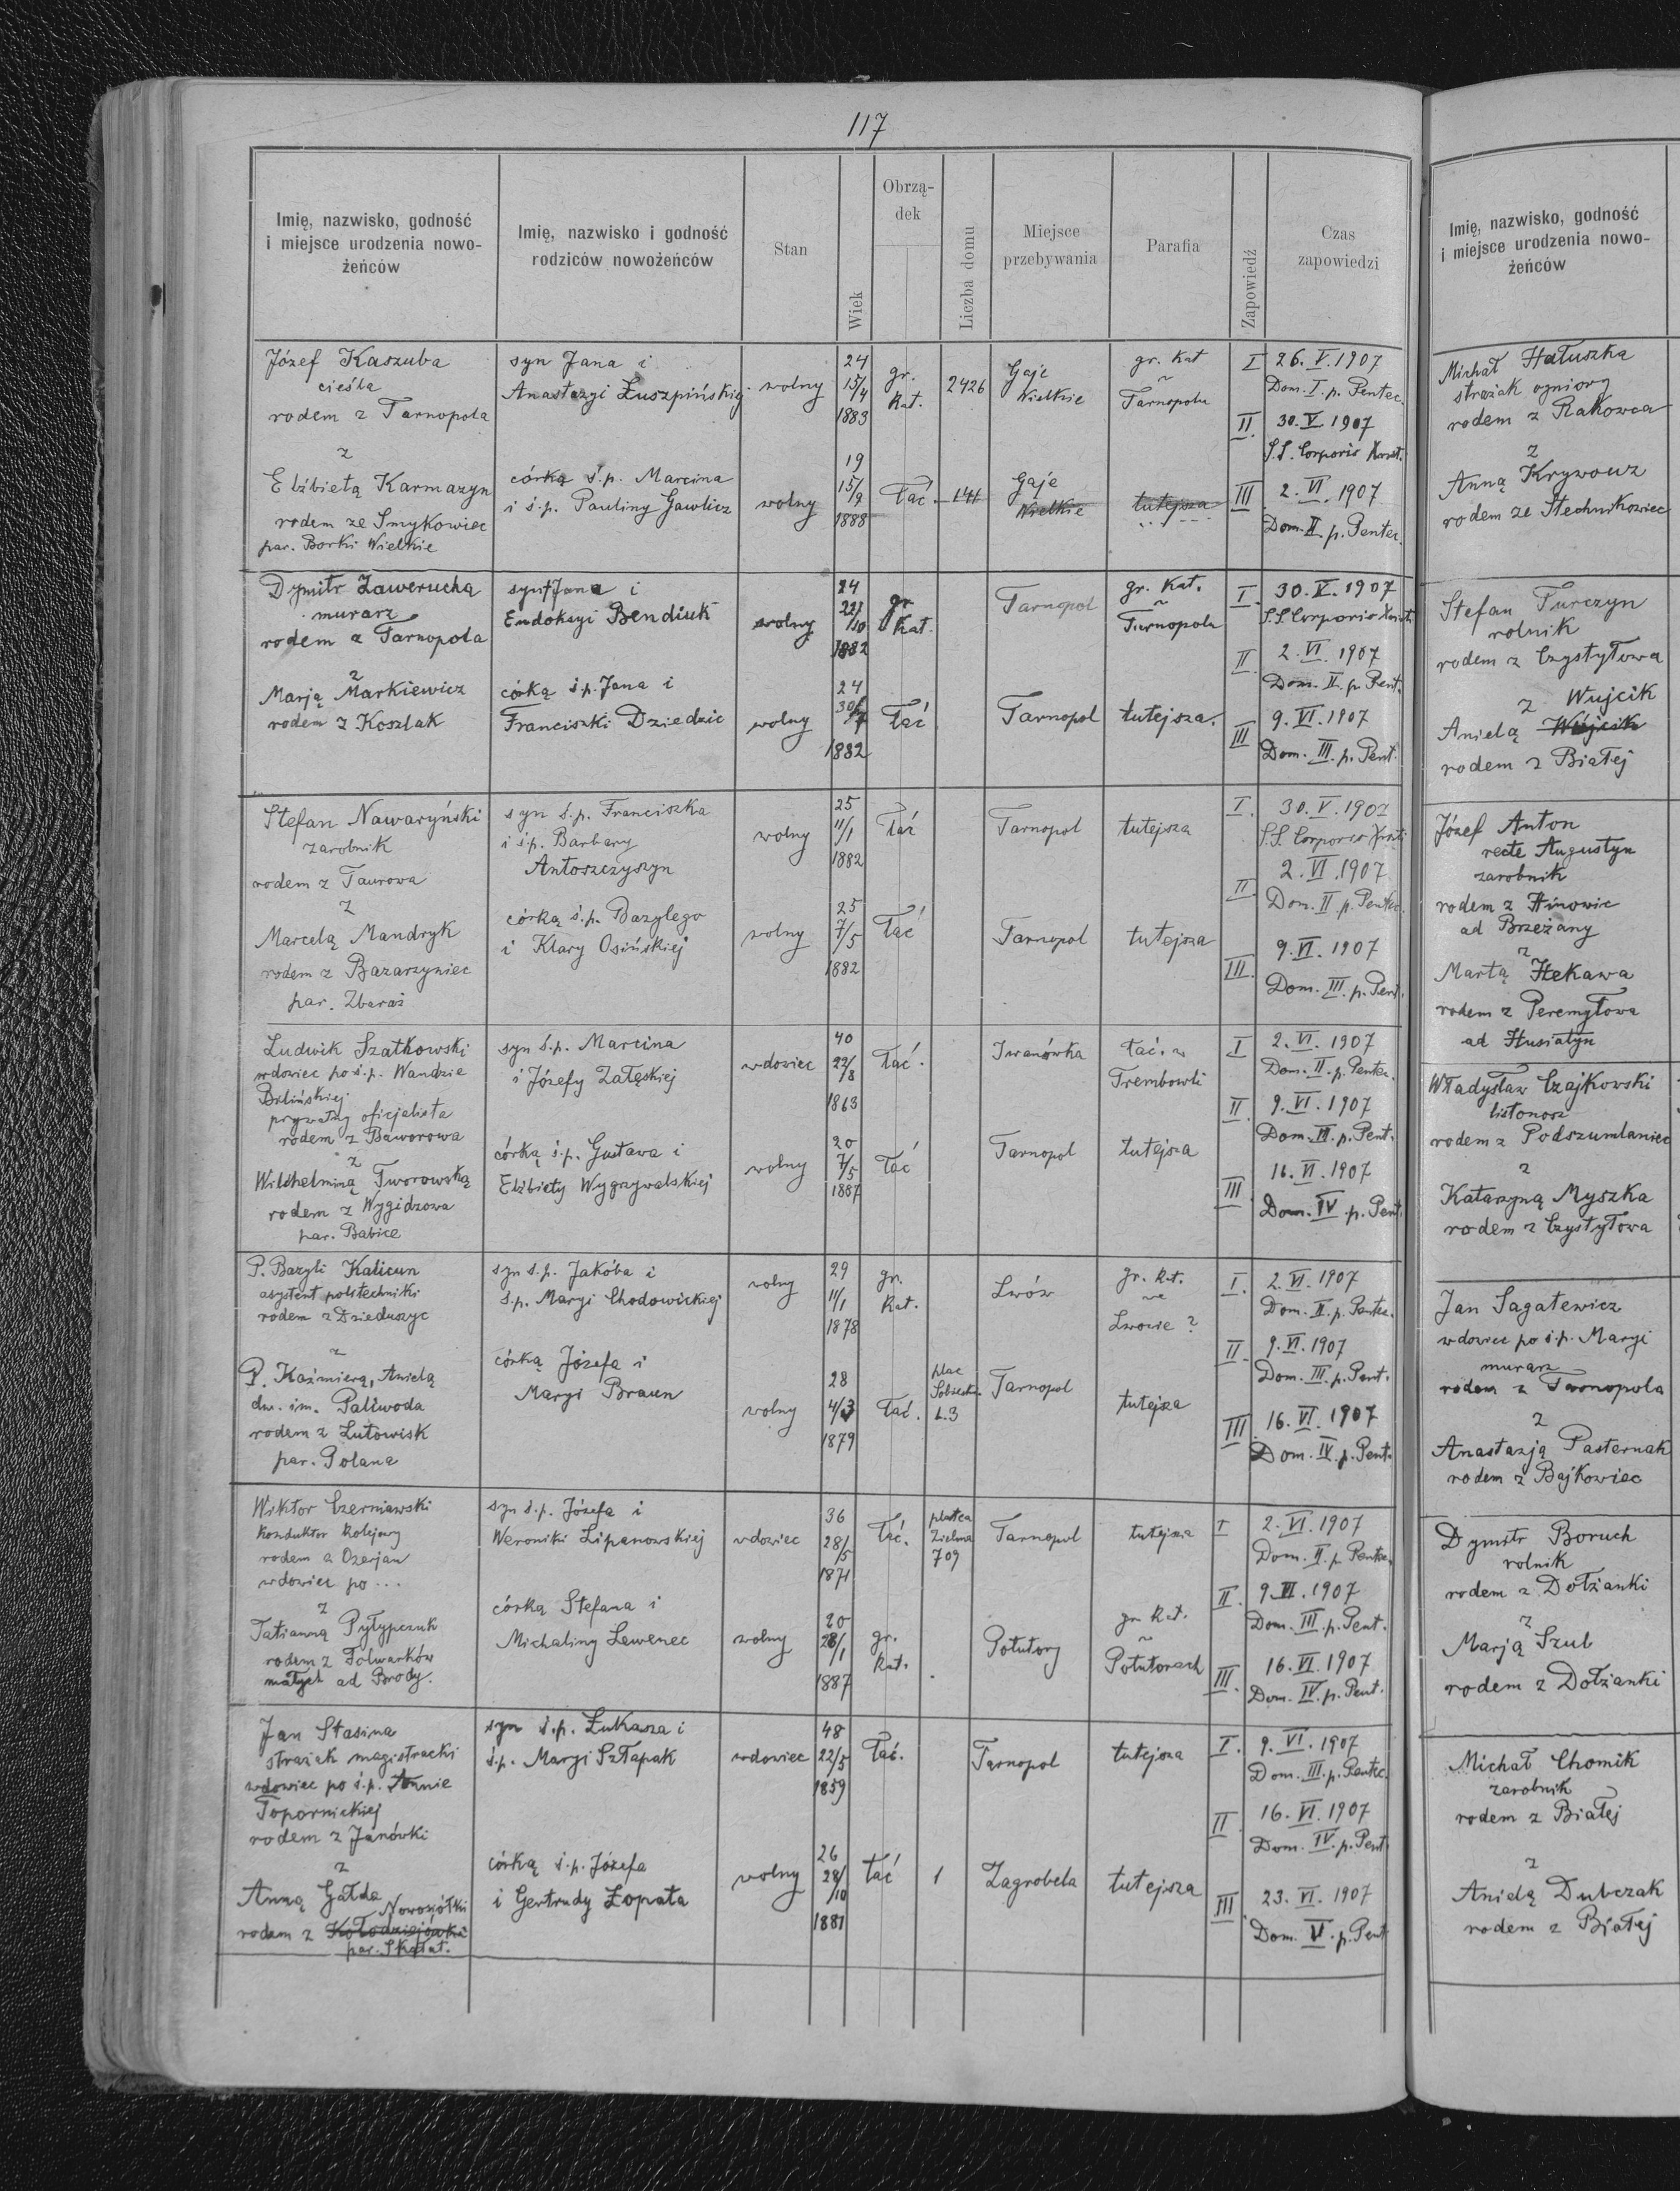 117
Imię, nazwisko, godność
i miejsce urodzenia nowo-
żeńców
Imię, nazwisko i godność
rodziców nowożeńców
Stan
Wiek
Obrzą-
dek
Liczba domu
Miejsce
przebywania
Parafia
Zapowiedź
Czas
zapowiedzi
Józef Kaszuba
cieśla
rodem z Tarnopola
syn Jana i
Anastazyi Łuszpińskiej
wolny
24
15/4
1883
gr.
kat.
2426
Gaje
Wielkie
gr. kat
w
Tarnopolu
I 26. V. 1907
Dom. I. p. Pentec.
II. 30. V. 1907
S.S. Corporis
z
Elżbietą Karmazyn
rodem ze Smykowiec
par. Borki Wielkie
córką ś.p. Marcina
i ś.p. Pauliny Gawlicz
wolny
19
15/9
1888
łać.
141
Gaje
Wielkie
tutejsza
III 2. VI. 1907
Dom. II. p. Pentec.
Dymitr Zawerucha
murarz
rodem z Tarnopola
syn Jana i
Eudoksyi Bendiuk
wolny
24
22/10
1882
gr.
kat.
Tarnopol
gr. kat.
w
Tarnopolu
I. 30. V. 1907
S.S. Corporis
II 2. VI. 1907
Dom. II. p. Pent.
z
Marją Markiewicz
rodem z Koszlak
córką ś.p. Jana i
Franciszki Dziedzic
wolny
24
1882
łać
Tarnopol
tutejsza.
III 9. VI. 1907
Dom. III. p. Pent.
Stefan Nawaryński
zarobnik
rodem z Taurowa
syn ś.p. Franciszka
i ś.p. Barbary
Antoszczyszyn
wolny
25
11/1
1882
łać
Tarnopol
tutejsza
I. 30. V. 1907
S.S. Corporis
II 2. VI. 1907
Dom. II p. Pentec.
z
Marcelą Mandryk
rodem z Bazarzyniec
par. Zbaraż
córką ś.p. Bazylego
i Klary Osińskiej
wolny
25
7/5
1882
łać
Tarnopol
tutejsza
III. 9. VI. 1907
Dom. III. p. Pent.
Ludwik Szatkowski
wdowiec po ś.p. Wandzie
Bilińskiej
prywatny oficjalista
rodem z Baworowa
syn ś.p. Marcina
i Józefy Załęskiej
wdowiec
40
22/8
1863
łać.
Iwanówka
łać. w
Trembowli
I 2. VI. 1907
Dom. II. p. Pentec.
II 9. VI. 1907
Dom. III. p. Pent.
z
Wilchelminą Tworowską
rodem z Wygidzowa
par. Babice
córką ś.p. Gustawa i
Elżbiety Wygrzywalskiej
wolny
20
7/5
1887
łać
Tarnopol
tutejsza
III 16. VI. 1907
Dom. IV. p. Pent.
P. Bazyli Kalicun
asystent politechniki
rodem z Dzieduszyc
syn ś.p. Jakóba i
ś.p. Maryi Chodowickiej
wolny
29
11/1
1878
gr.
kat.
Lwów
gr. kat.
we
Lwowie ?
I. 2. VI. 1907
Dom. II. p. Pentec.
II. 9. VI. 1907
Dom. III. p. Pent.
z
P. Kaźmierą, Anielą
dw. im. Paliwoda
rodem z Lutowisk
par. Polana
córką Józefa i
Maryi Braun
wolny
28
4/3
1879
łać.
plac
Sobiesk.
L. 3
Tarnopol
tutejsza
III 16. VI. 1907
Dom. IV. p. Pent.
Wiktor Czerniawski
konduktor kolejowy
rodem z Ozerjan
wdowiec po ...
syn ś.p. Józefa i
Weroniki Lipanowskiej
wdowiec
36
28/5
1871
łać.
Zielna
709
Tarnopol
tutejsza
I 2. VI. 1907
Dom. II. p. Pentec.
II. 9. VI. 1907
Dom. III. p. Pent.
z
Tatianną Pyłypczuk
rodem z Folwarków
małych ad Brody.
córką Stefana i
Michaliny Lewenec
wolny
20
28/1
1887
gr.
kat.
Potutory
gr. kat.
w
Potutorach
III. 16. VI. 1907
Dom. IV. p. Pent.
Jan Stasina
strażak magistracki
wdowiec po ś.p. Annie
Topornickiej
rodem z Janówki
syn ś.p. Łukasza i
ś.p. Maryi Szłapak
wdowiec
48
22/5
1859
łać.
Tarnopol
tutejsza
I. 9. VI. 1907
Dom. III. p. Pentec.
II 16. VI. 1907
Dom. IV. p. Pent.
z
Anną Gałda
Nowosiółki
rodem z Kołodziejówki
par. Skałat.
córką ś.p. Józefa
i Gertrudy Łopata
wolny
26
28/10
1881
łać
1
Zagrobela
tutejsza
III 23. VI. 1907
Dom. V. p. Pent
Imię, nazwisko, godność
i miejsce urodzenia nowo-
żeńców
Michał Hałuszka
strażak ogniowy
rodem z Rakowca
z
Anną Krywouz
rodem ze Stechnikowiec
Stefan Turczyn
rolnik
rodem z Czystyłowa
z Wujcik
Anielą Wójcik
rodem z Białej
Józef Anton
recte Augustyn
zarobnik
rodem z Hinowic
ad Brzeżany
z
Martą Hekawa
rodem z Peremyłowa
ad Husiatyn
Władysław Czajkowski
listonosz
rodem z Podszumlaniec
z
Katarzyną Myszka
rodem z Czystyłowa
Jan Sagatewicz
wdowiec po ś.p. Maryi
murarz
rodem z Tarnopola
z
Anastazją Pasternak
rodem z Bajkowiec
Dymitr Boruch
rolnik
rodem z Dołżanki
z
Marją Szul
rodem z Dołżanki
Michał Chomik
zarobnik
rodem z Białej
z
Anielą Dubczak
rodem z Białej